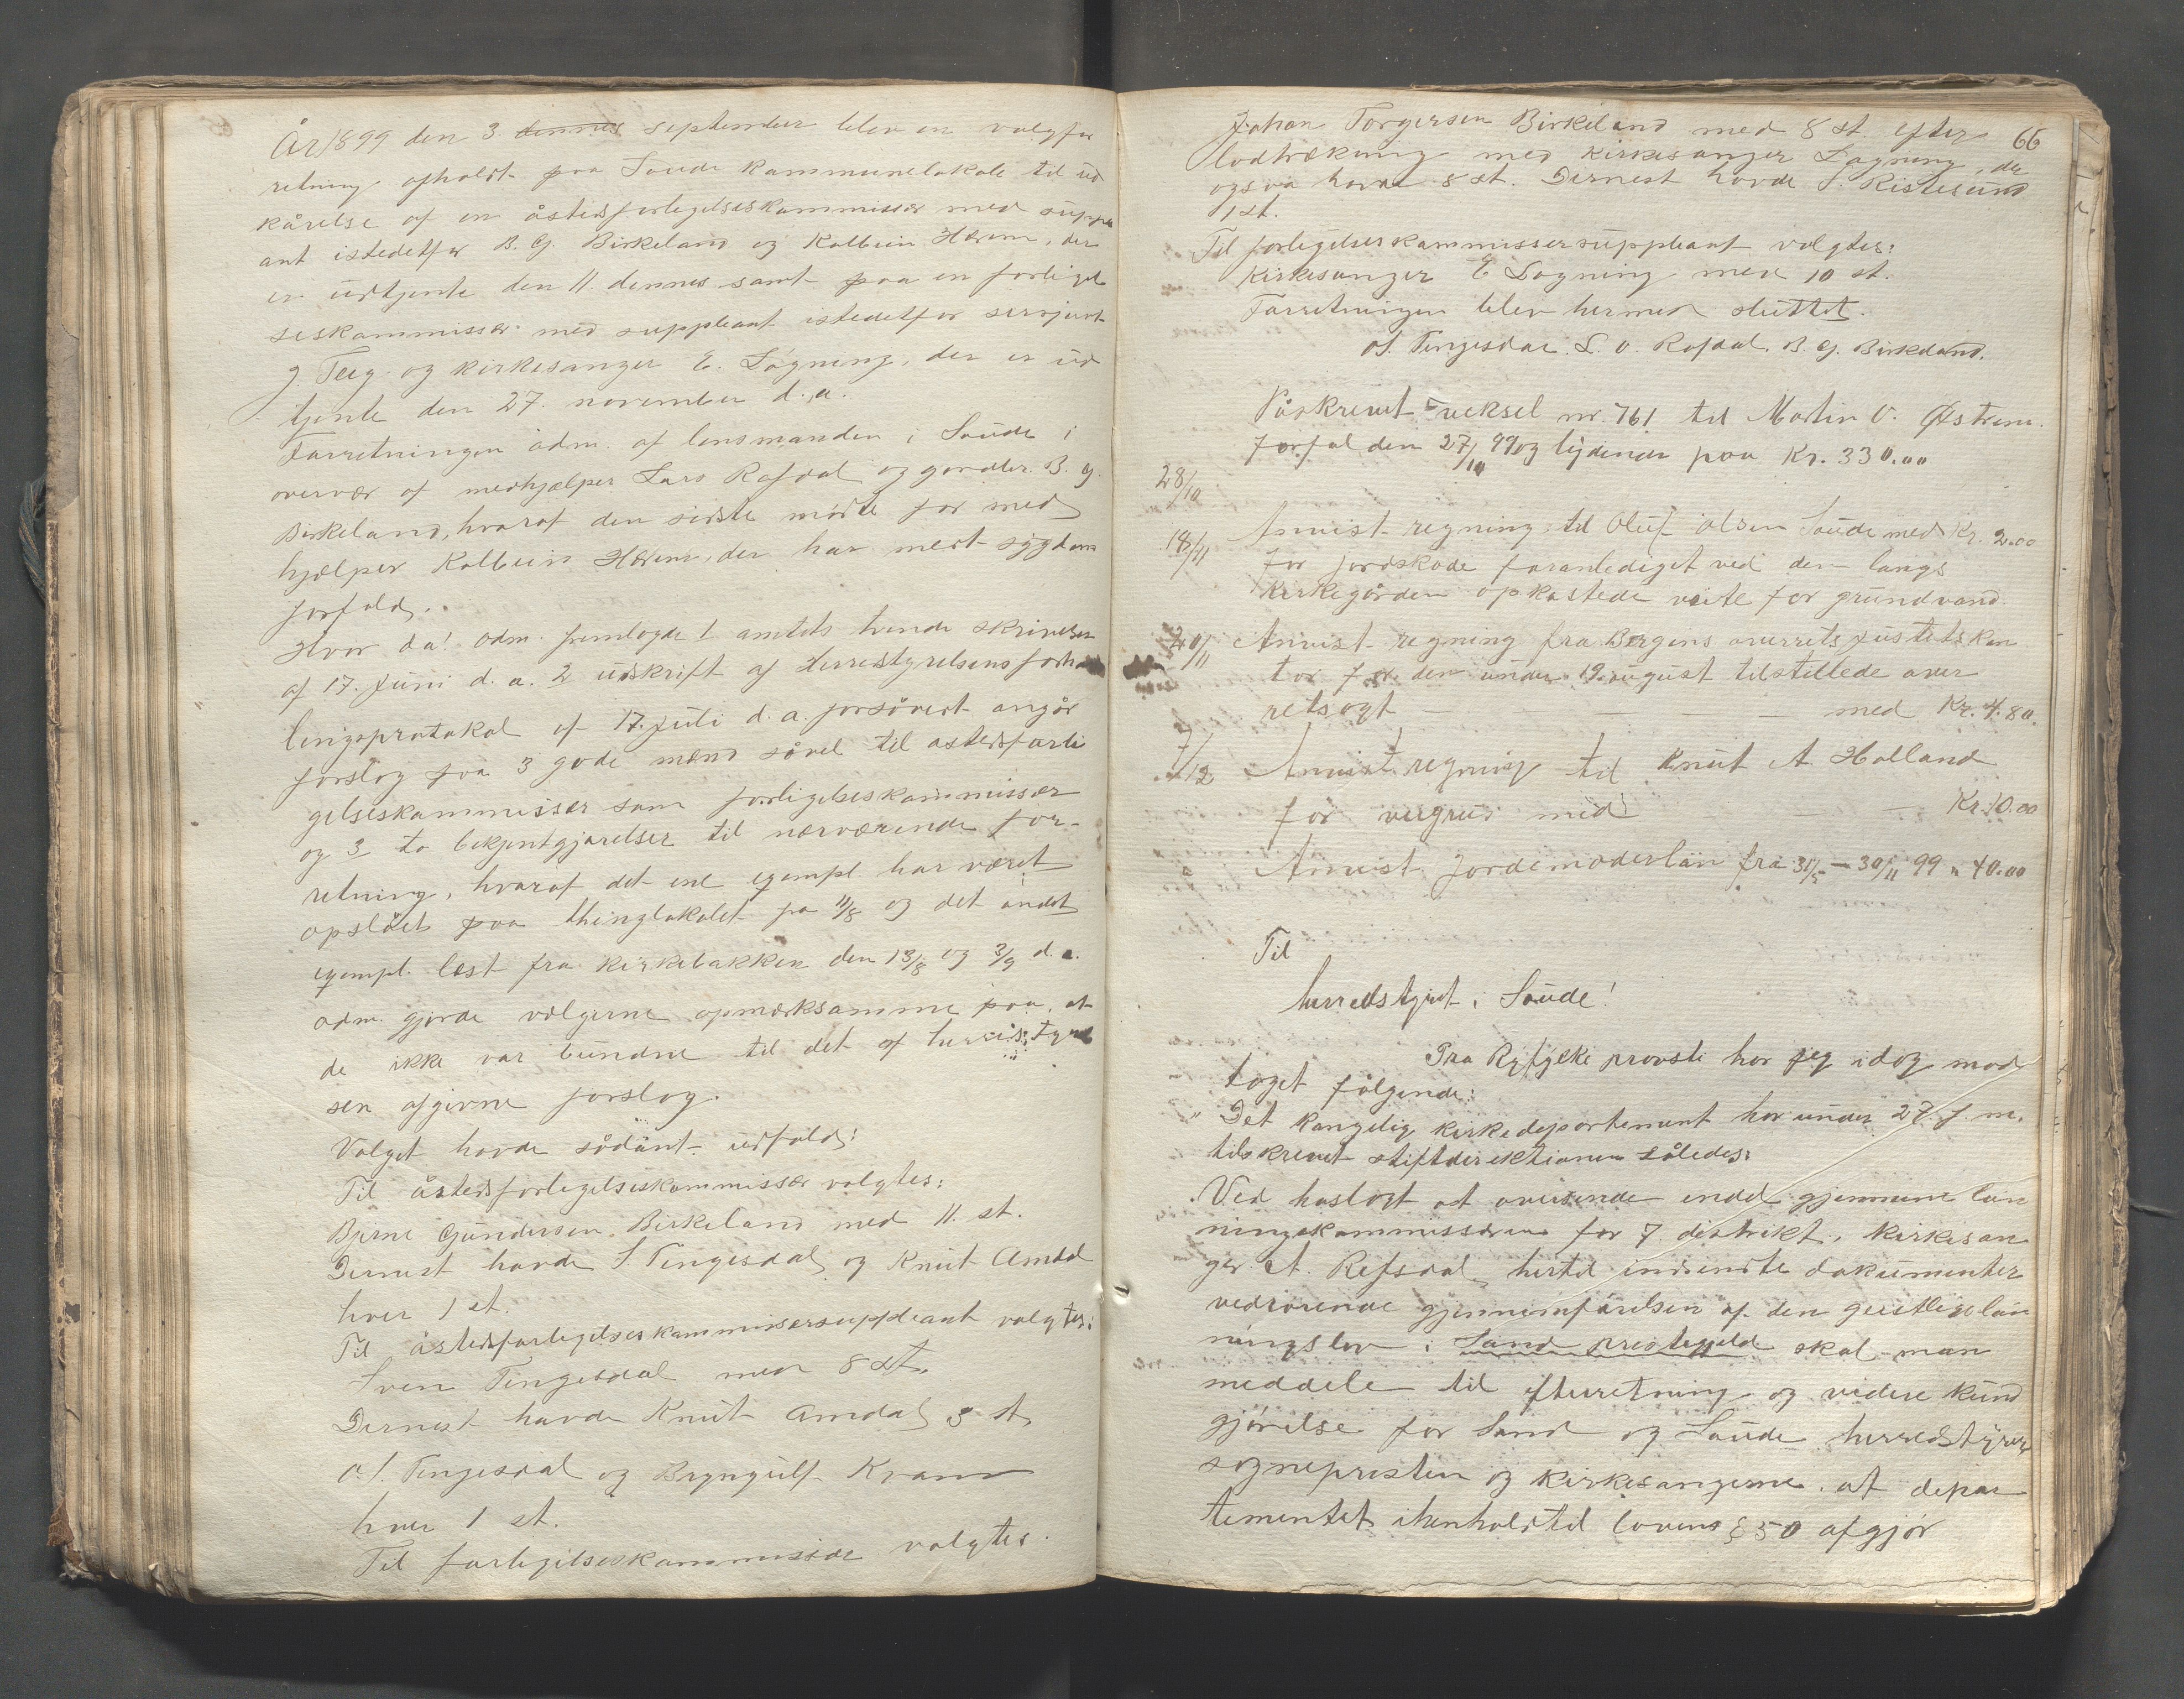 År 1899 den 3. dennes september blev en valgfor
retning afholdt paa Saude kommunelokale til ud
kårelse af en åstedsforligelseskommissær med supple
ant istedetfor B. G. Birkeland og Kolbein Hærem, der
er udtjente den 11. dennes samt paa en forligel
seskommissær med suppleant istedetfor servjent
J. Teig og kirkesanger E. Løgning, der er ud
tjente den 27. november d.a.
Forretningen adm. af lensmanden i Saude i
overvær af medhjælper Lars Rafdal og gaardbr. B. G.
Birkeland, hvoraf den sidste mødte for med
hjælper Kolbein Hærem, der har meldt sygdoms
forfald.
Hvor da! adm. fremlagde 1 amtets hende skrivelse
af 17. juni d.a. 2 udskrift af Herredstyrelsens forhand
lingsprotokol af 17. juli d.a. forsåvidt angår
forslag paa 3 gode mænd såvel til astedsforli
gelseskommissær som forligelseskommissær
og 3 to bekjentgjørelser til nærværende for-
retning, hvoraf det ene exempl. har været
opslået paa thinglokalet fra 11/8 og det andet
exempl. læst fra kirkebakken den 13/8 og 3/9 d.a.
adm. gjorde vælgerne opmærksomme paa, at
de ikke var bundne til det af herredsstyrel
sen afgivne forslag.
Valget havde sådant udfald:
Til åstedsforligelseskommissær valgtes:
Bjerne Gundersen Birkeland med 11. st.
Dernest havde S. Tengesdal og Knut Amdal
hver 1 st.
Til åstedsforligelseskommissærsuppleant valgtes:
Sven Tengesdal med 8 st.
Dernest havde Knut Amdal 3 st.
O. S. Tengesdal og Bryngulf Kvam
hver 1 st.
Til forligelseskommissær valgtes
66
Johan Torgersen Birkeland med 8 st. efter
lodtrækning med kirkesanger Løgning, der
ogsaa havde 8 st. Dernest havde S. Ristesund
1 st.
Til forligelseskommissersuppleant valgtes:
Kirkesanger E Løgning med 10 st.
Forretningen blev hermed sluttet.
O. S. Tengesdal. L. O. Rafdal. B. G. Birkeland.
Påskrevet veksel nr. 761 til Martin O. Østrem.
forfal den 27/10 99 og lydende paa Kr. 330.00
28/10
18/11 Anvist regning til Oluf Olsen Saude med Kr. 2.00
for jordskade foranlediget ved den langs
Kirkegården opkastede veite for grundvand.
20/11 Anvist regning fra Bergens overrets justitskon
tor for den under 19. august tilstillede over
retsagt — — — — med Kr. 4.80.
7/12 Anvist regning til Knut A. Holland
for veigrus med — — Kr. 10.00
Anvist Jordemoderløn fra 31/5 – 30/11 99 „ 40.00
Til
herredstyret i Saude!
Fra Ryfylke provsti har jeg idag mod
taget følgende:
„Det kongelig kirkedepartement har under 27 f. m.
tilskrevet stiftdirektionen således:
Ved hoslagt at oversende endel gjennem løn
ningskommissæren for 7 distrikt, kirkesan
ger A. Refsdal hertil indsendte dokumenter
vedrørende gjennemførelsen af den geistlige løn
ningslov i Sand prestegjeld skal man
meddele til efterretning og videre kund
gjørelse for Sand og Saude herredstyrer
sognepresten og kirkesangerne, at depar
tementet i henhold til lovens § 50 afgjør